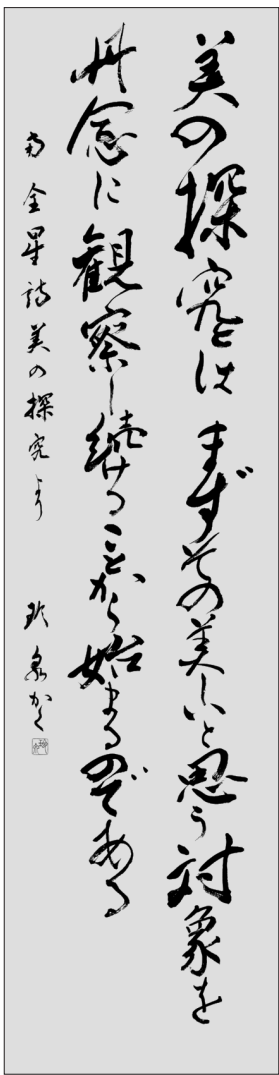 美の探究とはまずその美しいと思う対象を
丹念に観察し続けることから始まるのである
南金星詩美の探究より 玲泉かく